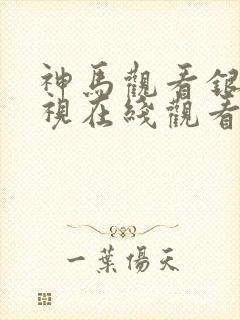 神馬觀看銀
視在綫觀看
一葉傷天